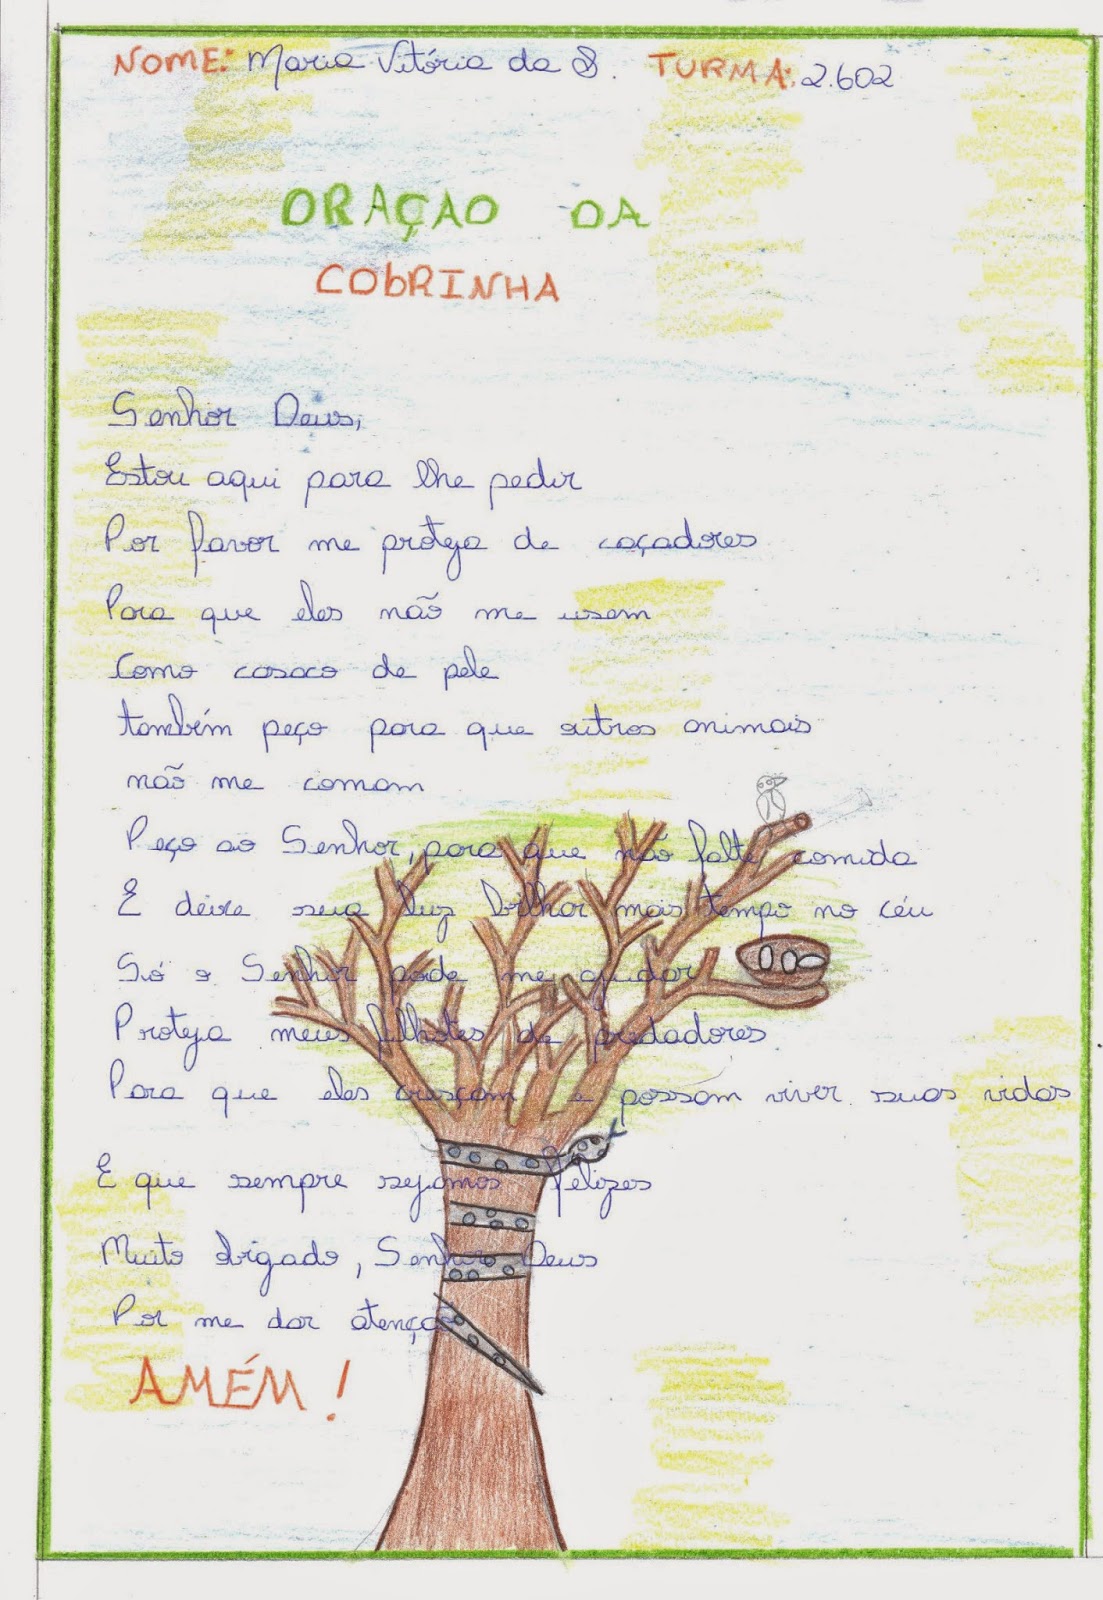 NOME: Maria Vitória da S. TURMA: 2.602
ORAÇAO DA
COBRINHA
Senhor Deus,
Estou aqui para lhe pedir
Por favor me proteja de caçadores
Para que eles não me usem
Como casaco de pele
também peço para que outros animais
não me comam
Peço ao Senhor, para que não falte comida
E deixe sua luz brilhar mais tempo no céu
Só o Senhor pode me ajudar
Proteja meus filhotes de predadores
Para que eles cresçam e possam viver suas vidas
E que sempre sejamos felizes
Muito obrigado, Senhor Deus
Por me dar atenção
AMÉM!